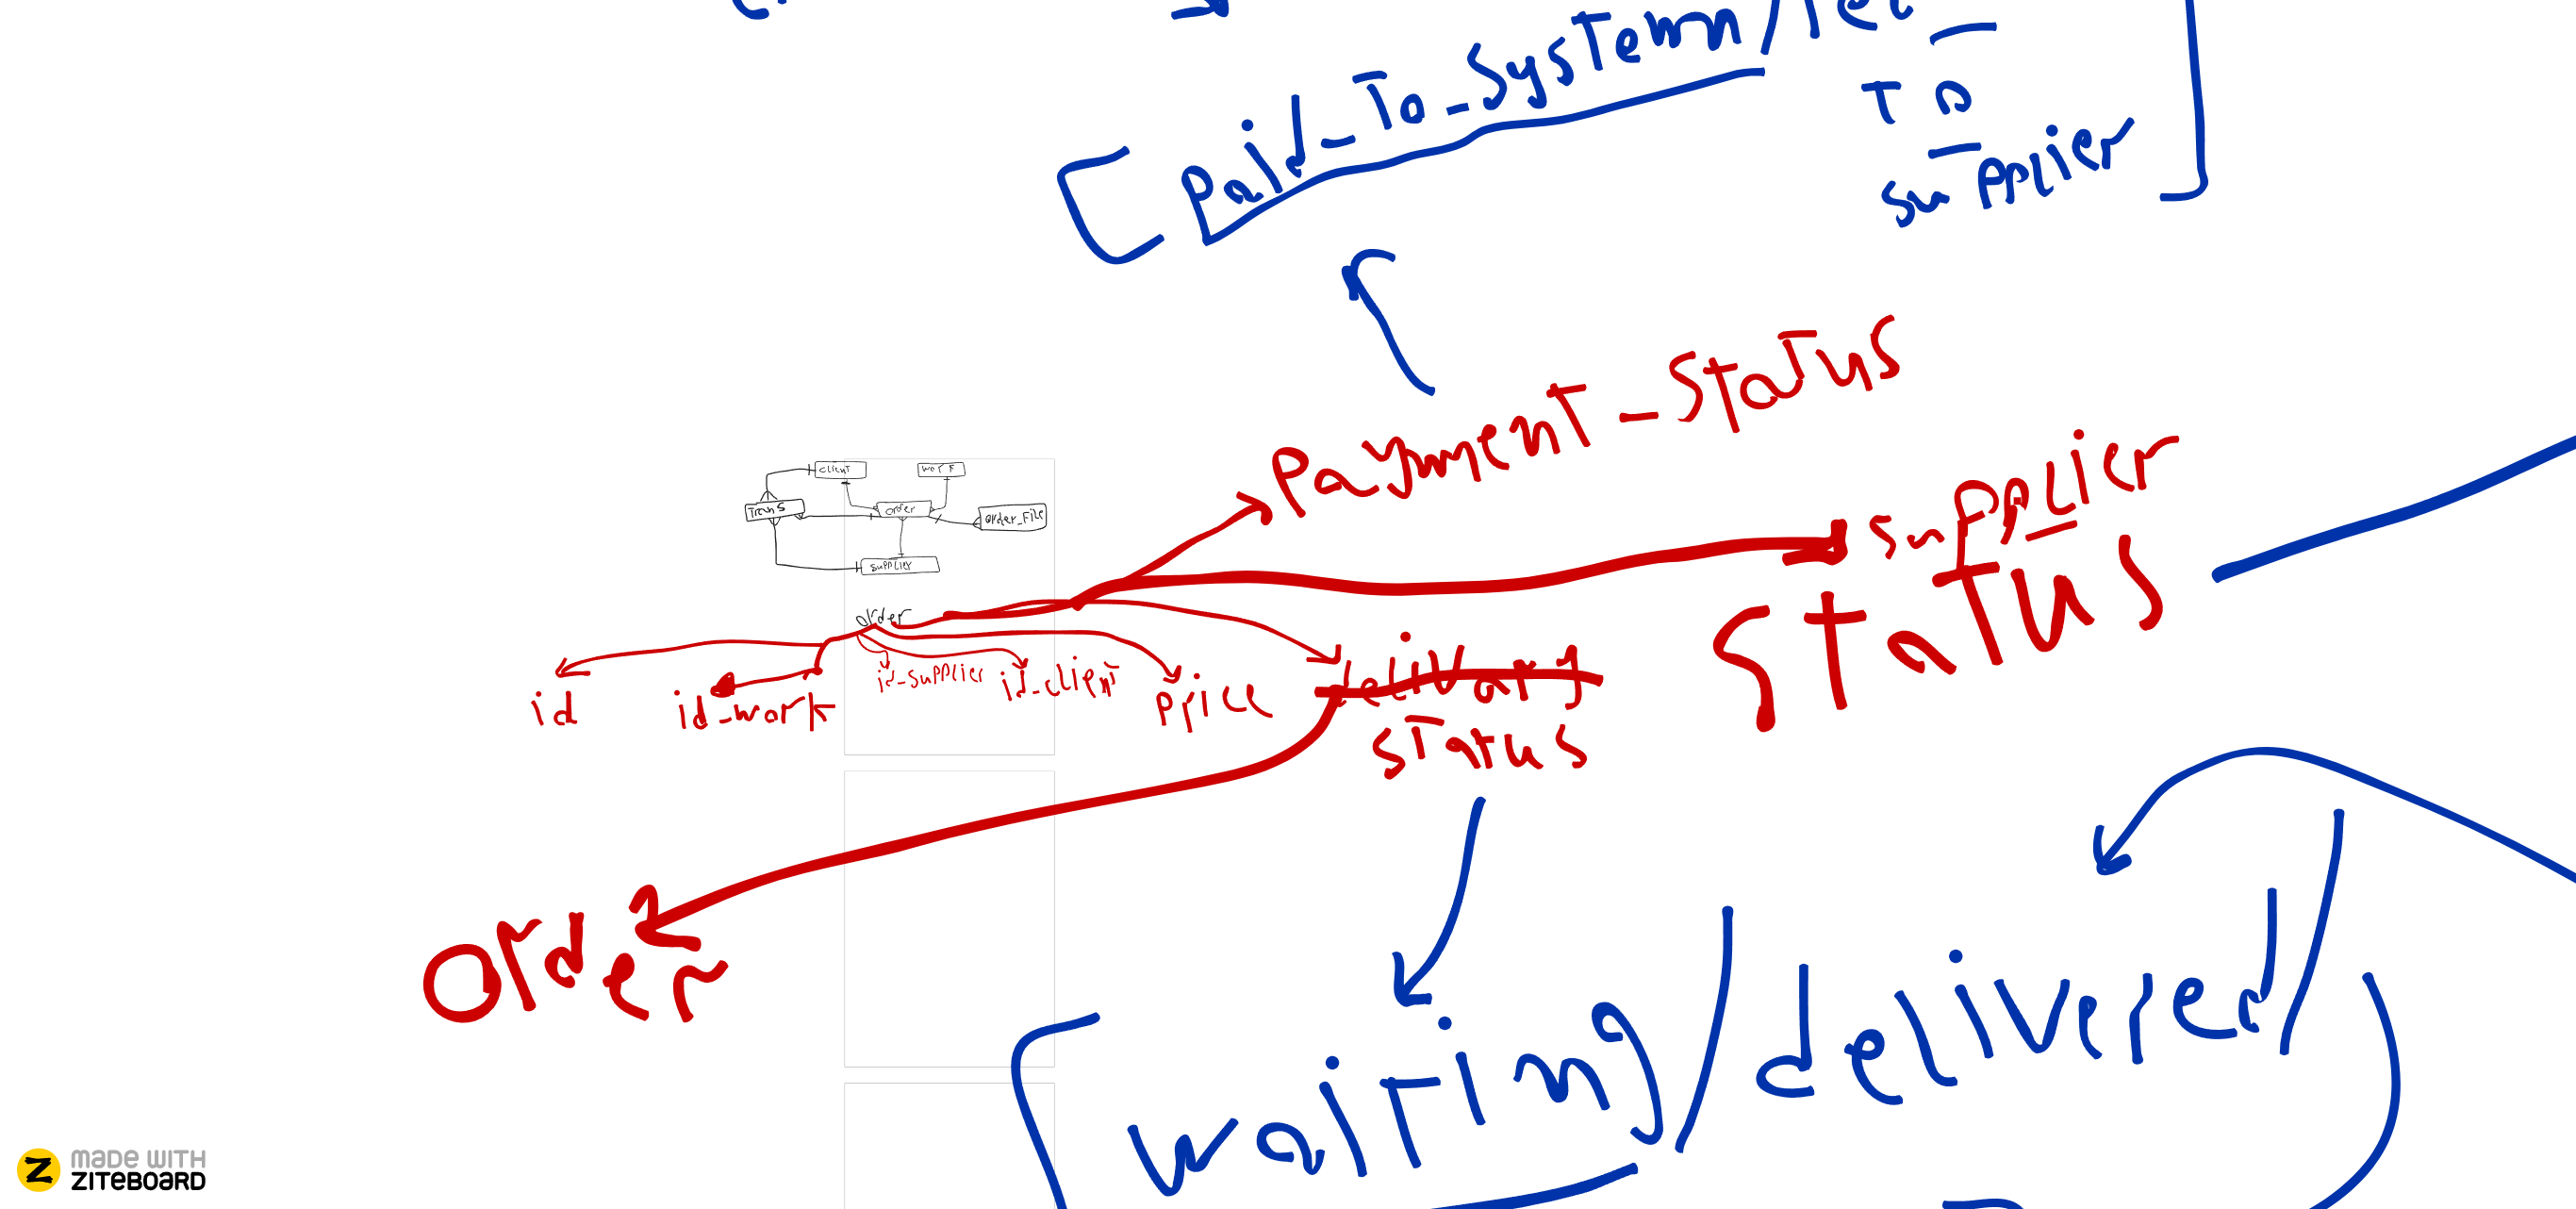 Paid_To_System/
To
supplier
Payment_Status
client
Trans
order
order_File
supplier
supplier
STATUS
order
id
id_work
id_supplier
id_client
Price
delivary
status
order
waiting/delivered/
MADE WITH
ZITEBOARD